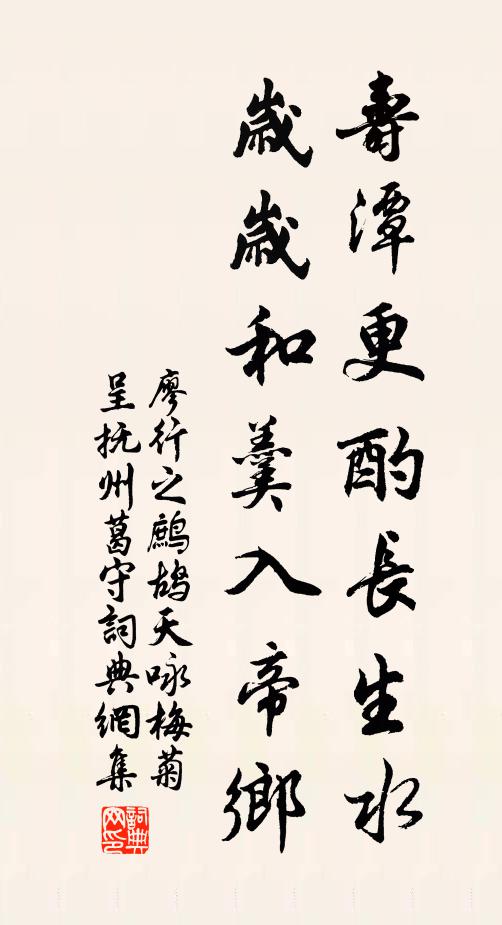 壽潭更酌長生水
歲歲和羹入帝鄉
廖行之鷓鴣天咏梅菊
呈抚州葛守詞典網集
詞典
网印